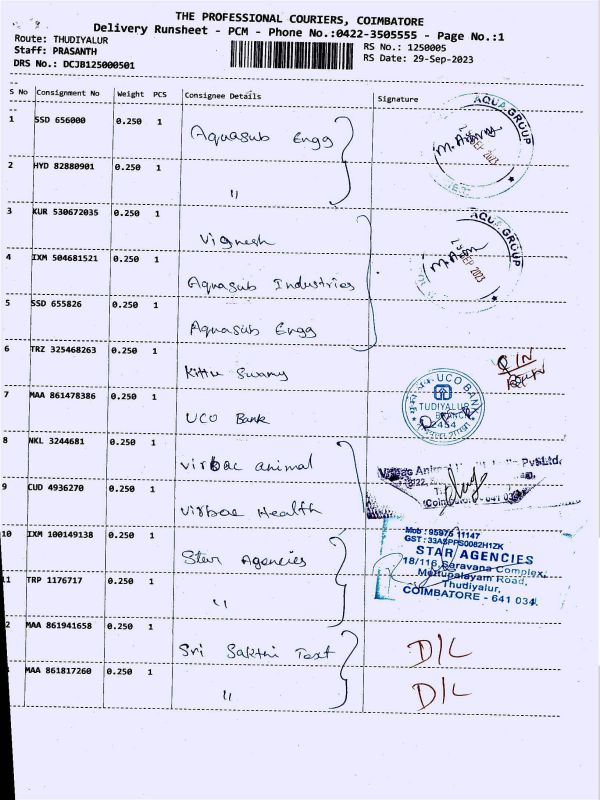 THE PROFESSIONAL COURIERS, COIMBATORE
Delivery Runsheet - PCM - Phone No.:0422-3505555 - Page No.:1
Route: THUDIYALUR
Staff: PRASANTH
RS No.: 1250005
DRS No.: DCJB125000501
RS Date: 29-Sep-2023
S No Consignment No Weight PCS Consignee Details Signature
1 SSD 656000 0.250 1 Aquasub Engg
AQUA GROUP
SEP 2023
2 HYD 82880901 0.250 1 "
3 KUR 530672035 0.250 1 Vignesh
AQUA GROUP
SEP 2023
4 IXM 504681521 0.250 1 Aquasub Industries
5 SSD 655826 0.250 1 Aquasub Engg
6 TRZ 325468263 0.250 1 Kittu Swamy
7 MAA 861478386 0.250 1 UCO Bank
UCO BANK
TUDIYALUR
BRANCH
2454
8 NKL 3244681 0.250 1 Virbac animal
Virbac Animal Pvt.Ltd.
Coimbatore - 641
9 CUD 4936270 0.250 1 Virbac Health
10 IXM 100149138 0.250 1 Star Agencies
Mob : 95975 11147
GST : 33ASPPS0082H1ZK
STAR AGENCIES
18/116, Saravana Complex,
Mettupalayam Road,
Thudiyalur,
COIMBATORE - 641 034.
11 TRP 1176717 0.250 1 "
2 MAA 861941658 0.250 1 Sri Sakthi Text D/L
MAA 861817260 0.250 1 " D/L